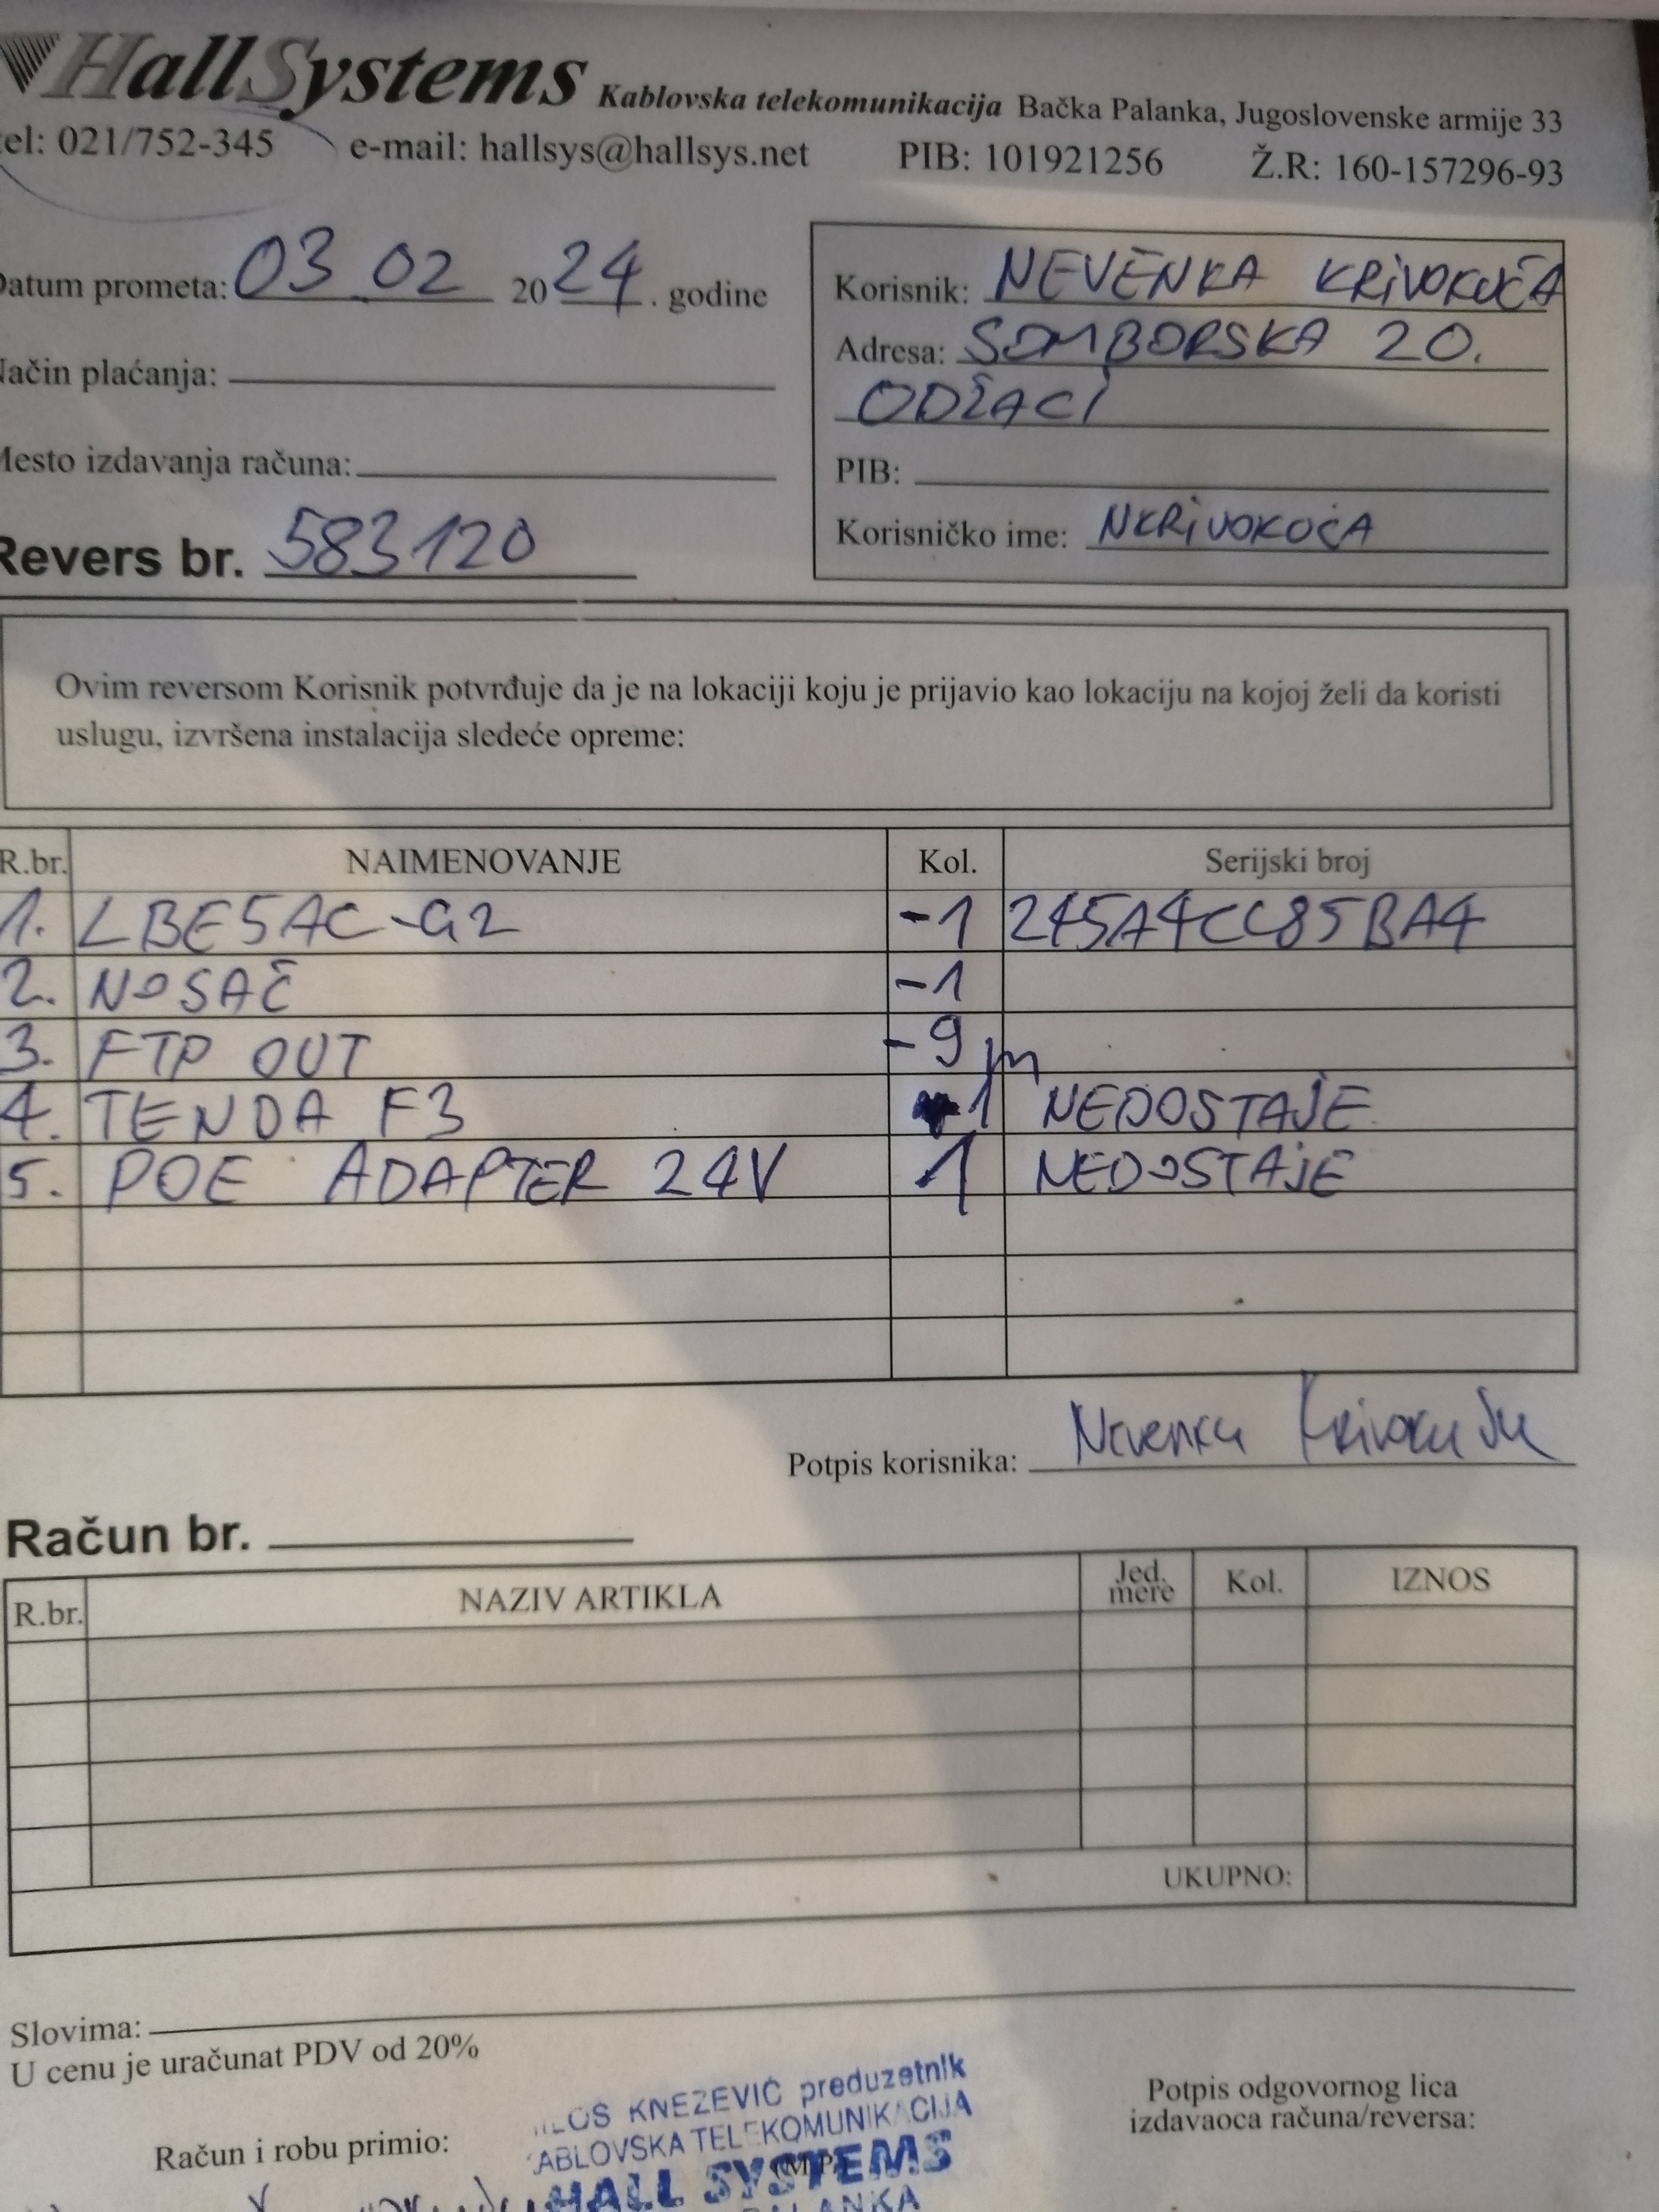 HallSystems Kablovska telekomunikacija Bačka Palanka, Jugoslovenske armije 33
tel: 021/752-345 e-mail: hallsys@hallsys.net PIB: 101921256 Ž.R: 160-157296-93
Datum prometa: 03 02 2024. godine
Korisnik: NEVENKA KRIVOKUĆA
Adresa: SOMBORSKA 20.
ODŽACI
Način plaćanja:
Mesto izdavanja računa:
PIB:
Korisničko ime: NKRIVOKUĆA
Revers br. 583120
Ovim reversom Korisnik potvrđuje da je na lokaciji koju je prijavio kao lokaciju na kojoj želi da koristi
uslugu, izvršena instalacija sledeće opreme:
R.br. NAIMENOVANJE Kol. Serijski broj
1. LBE5AC-G2 -1 245A4CC85BA4
2. NOSAČ -1
3. FTP OUT -9m
4. TENDA F3 1 NEDOSTAJE
5. POE ADAPTER 24V 1 NEDOSTAJE
Potpis korisnika: Nevenka Krivokuća
Račun br.
R.br. NAZIV ARTIKLA Jed. mere Kol. IZNOS
UKUPNO:
Slovima:
U cenu je uračunat PDV od 20%
KNEZEVIĆ preduzetnik
KABLOVSKA TELEKOMUNIKACIJA
HALL SYSTEMS
Račun i robu primio:
(M.P.)
Potpis odgovornog lica
izdavaoca računa/reversa: